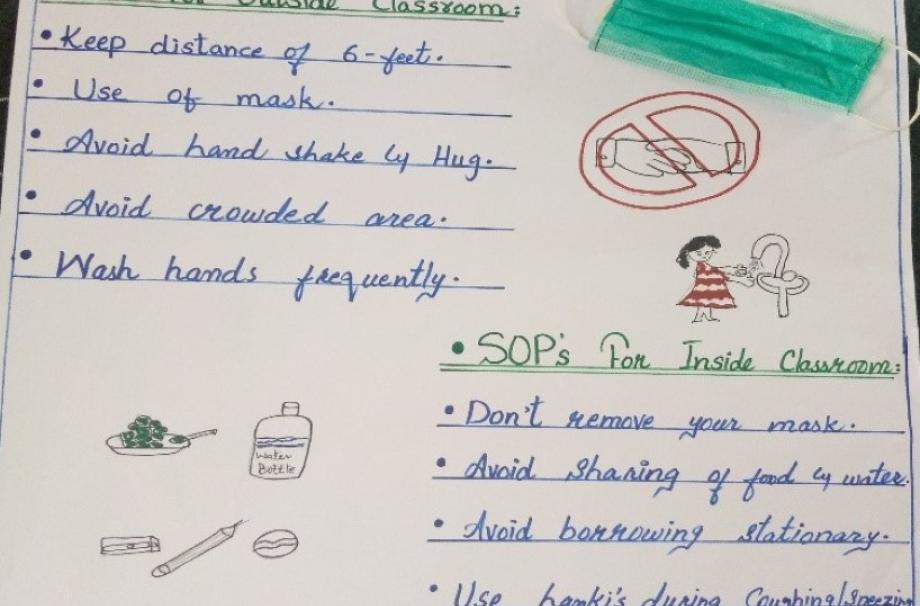 For Outside Classroom:
• Keep distance of 6-feet.
• Use of mask.
• Avoid hand shake & Hug.
• Avoid crowded area.
• Wash hands frequently.
• SOP's For Inside Classroom:
• Don't remove your mask.
• Avoid sharing of food & water.
• Avoid borrowing stationary.
• Use hanki's during Coughing/Sneezing
Water
Bottle